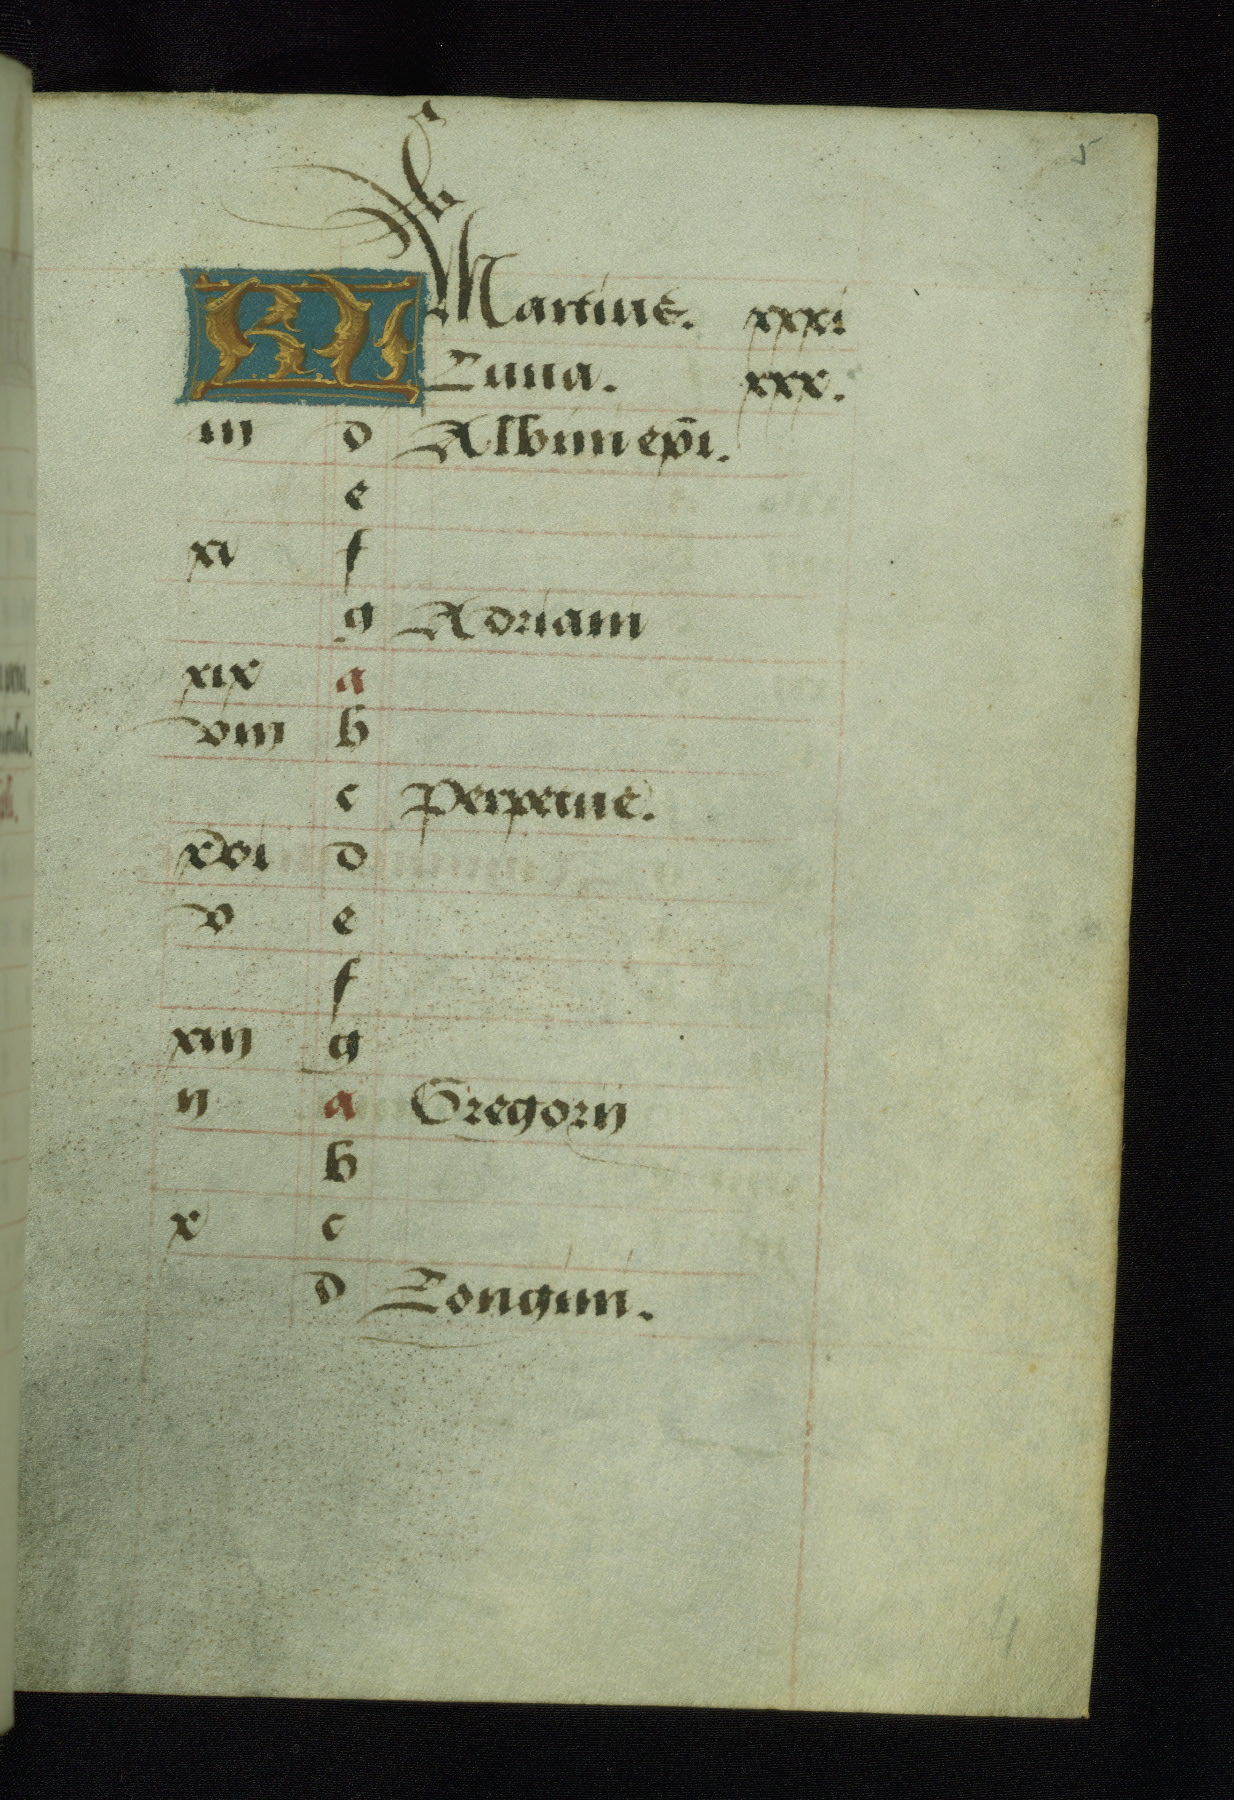 5
KL Martius. xxxi
Luna. xxx.
iii d Albini epi.
e
xi f
g Adriani
xix a
viii b
c Perpetue.
xvi d
v e
f
xiii g
ii a Gregorii
b
x c
d Longini.
4